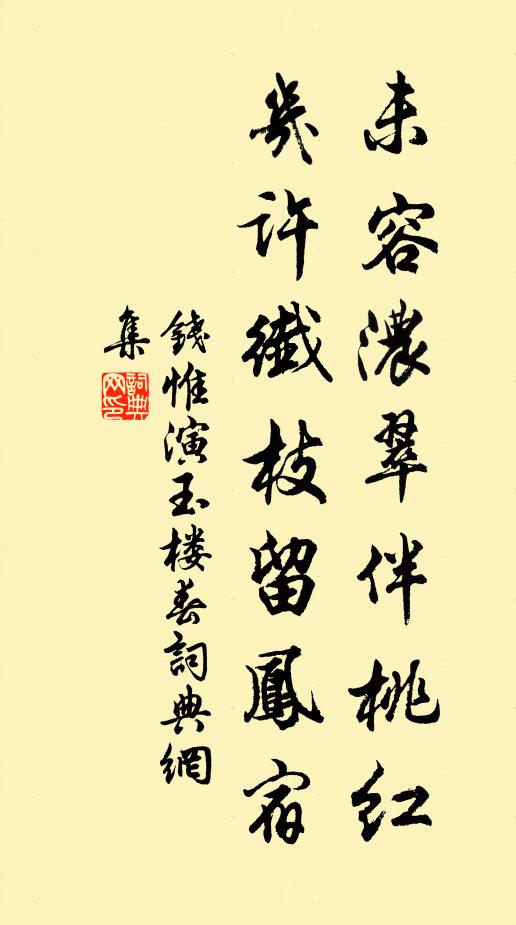 未容濃翠伴桃紅
幾許纖枝留鳳宿
錢惟演玉楼春詞典網
集
詞典
网印